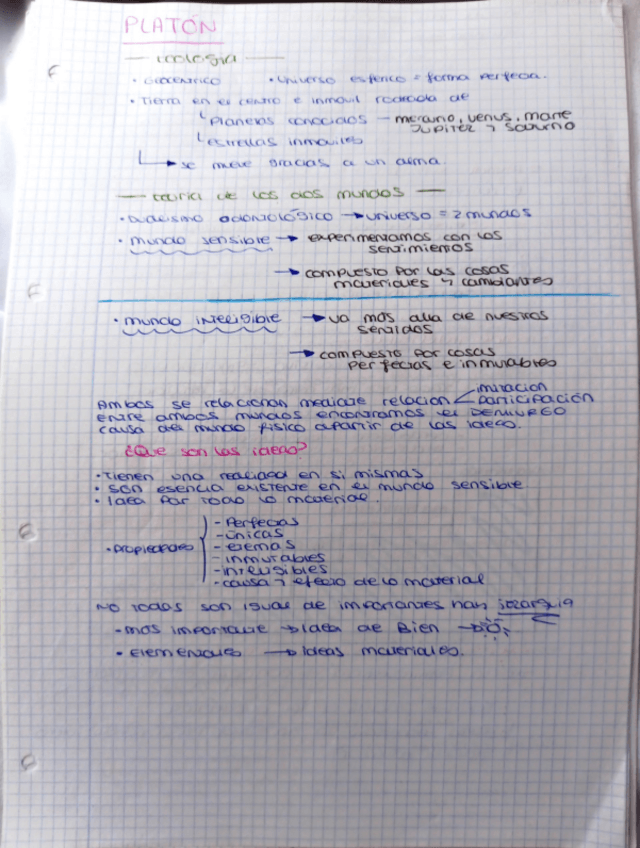 PLATÓN
— cología —
• Geocentrico • Universo esférico = forma perfecta.
• Tierra en el centro e inmovil rodeada de
Planetas conocidos — mercurio, venus, marte
Jupiter y Saturno
estrellas inmoviles
→ se mueve gracias a un alma.
— teoría de los dos mundos —
• Dualismo odontológico → universo = 2 mundos
• mundo sensible → experimentamos con los
sentimientos
→ compuesto por las cosas
materiales y cambiantes
• mundo inteligible → va mas alla de nuestros
sentidos
→ compuesto por cosas
perfectas e inmutables
imitación
Ambos se relacionan mediante relación < participación
entre ambos mundos encontramos el DEMIURGO
causa del mundo físico apartir de las ideas.
¿Que son las ideas?
• Tienen una realidad en si mismas
• Son esencia existente en el mundo sensible
• Idea por todo lo material.
- Perfectas
- únicas
- eternas
• Propiedades - inmutables
- inteligibles
- causa y efecto de lo material
No todas son igual de importantes han jerarquia
- mas importante → Idea de Bien →
• Elementales → Ideas materiales.